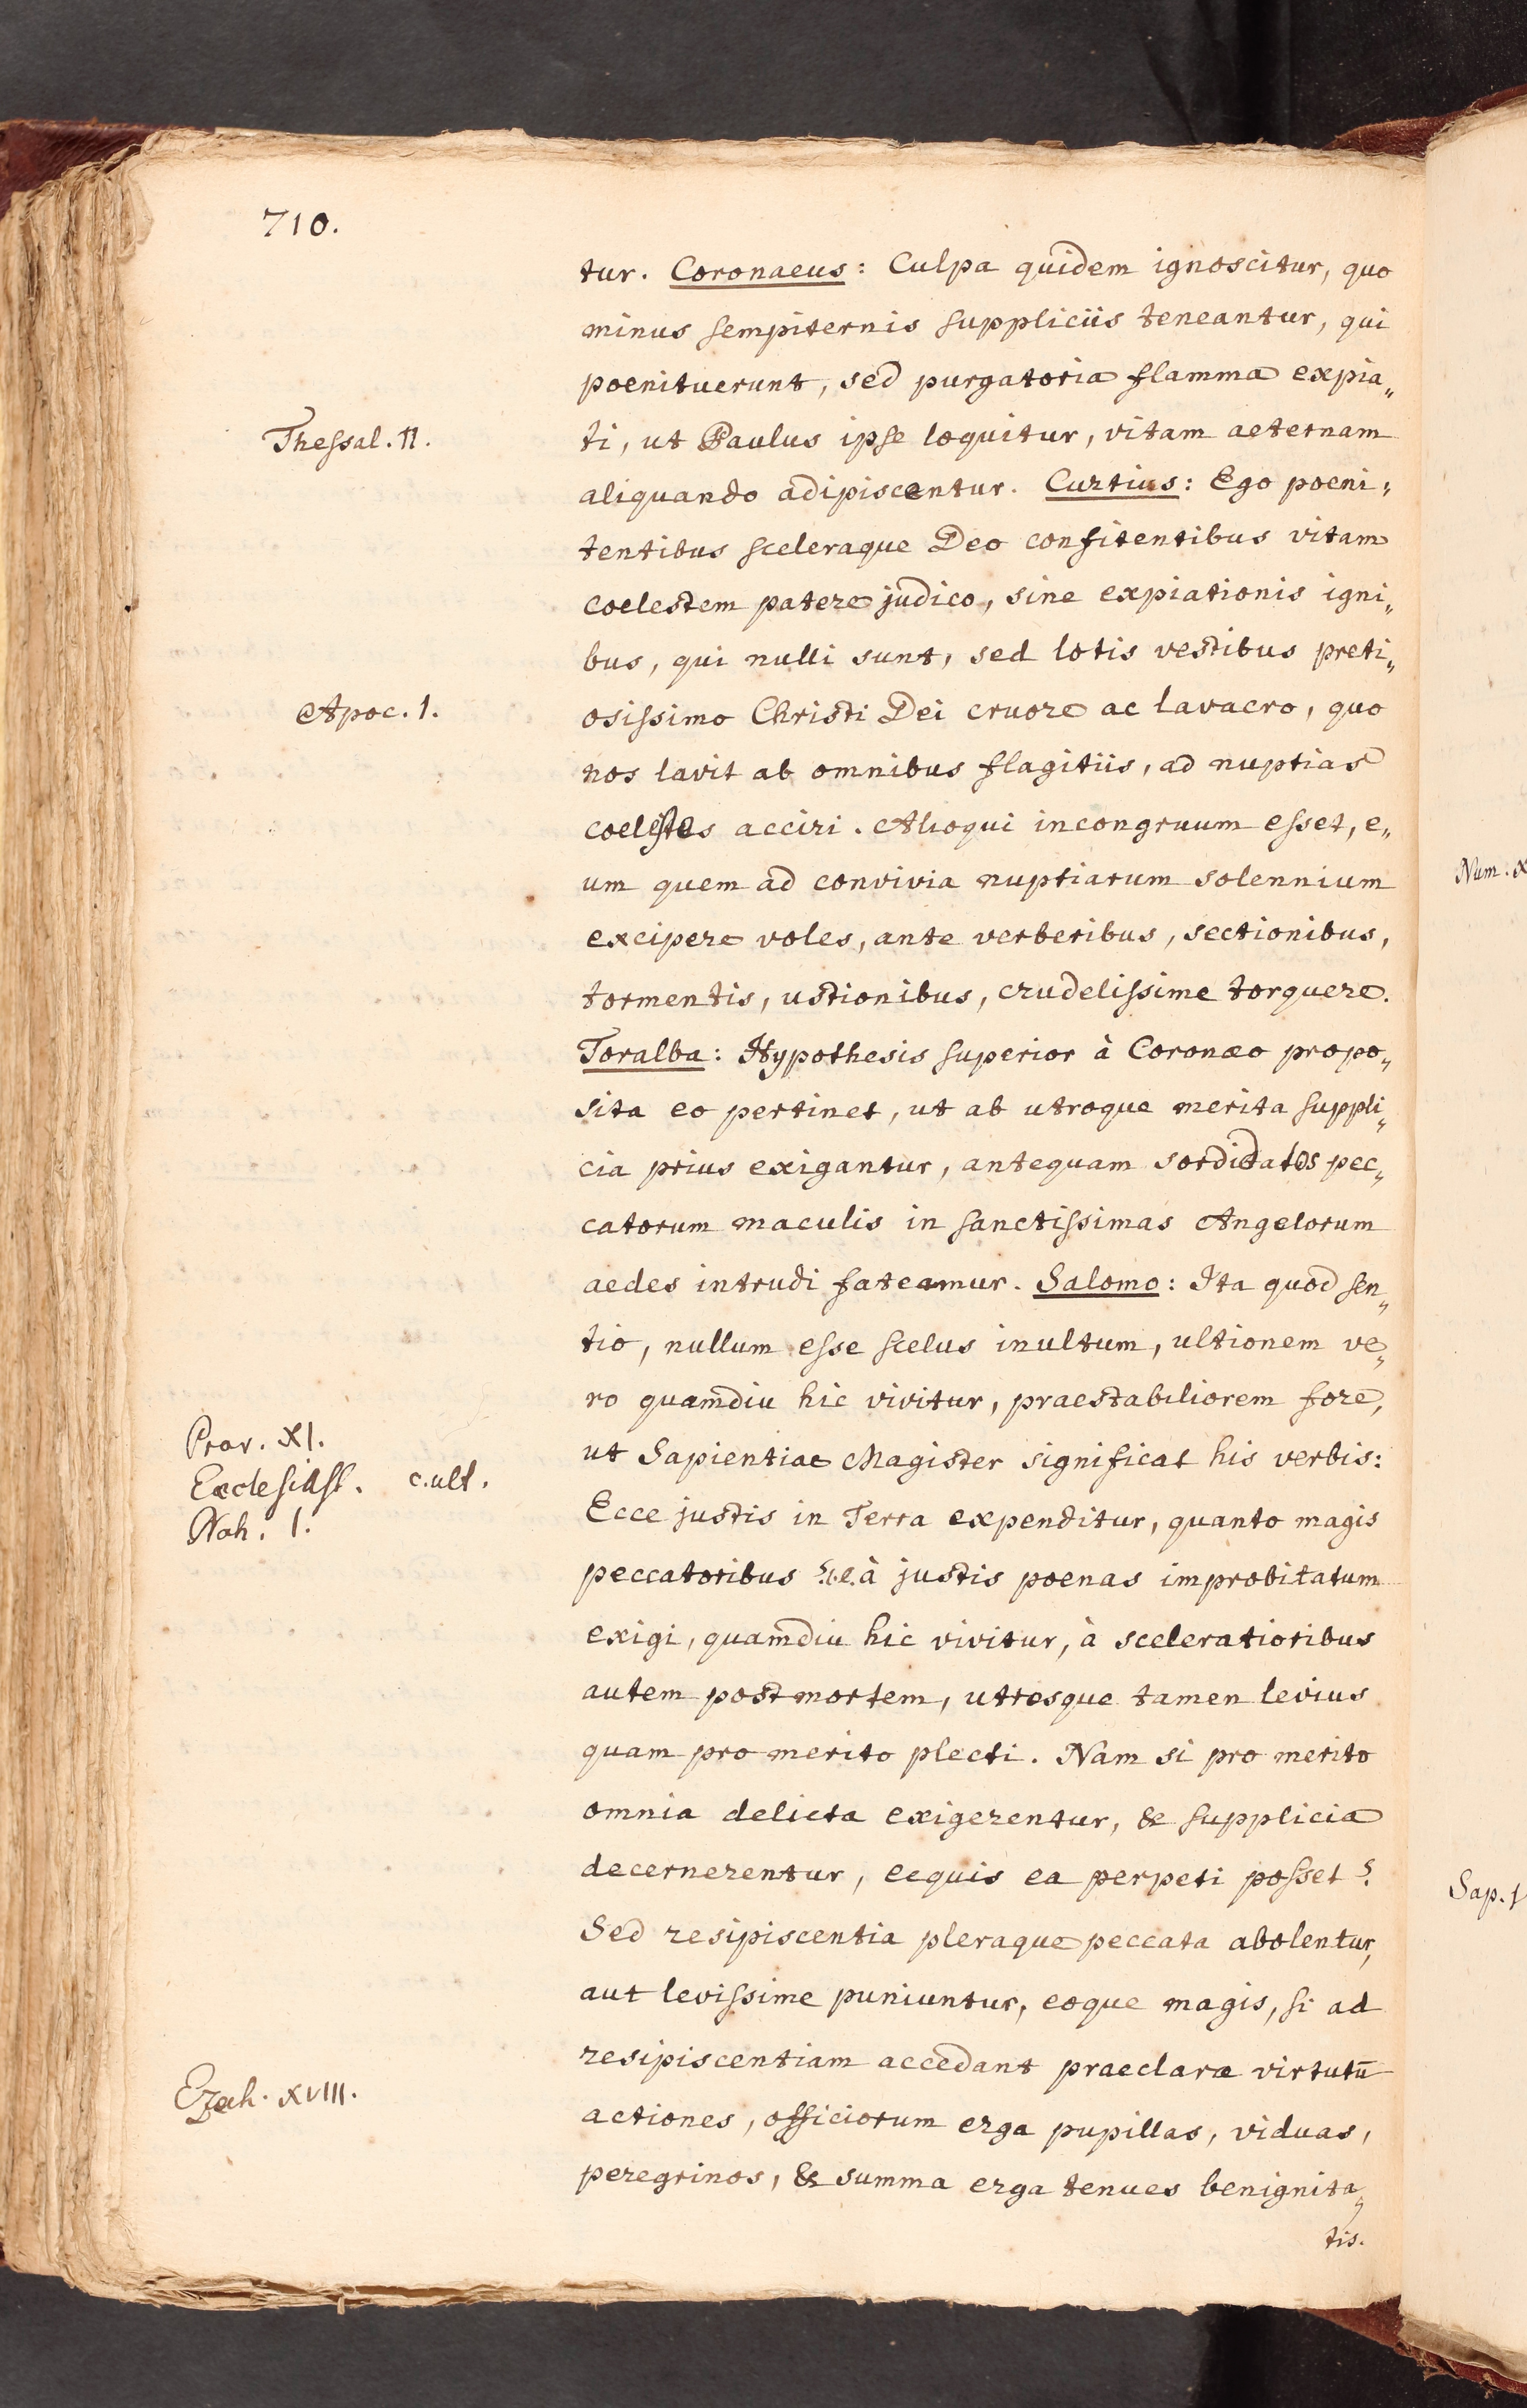 710.
tur. Coronaeus: Culpa quidem ignoscitur, quo
minus sempiternis suppliciis teneantur, qui
poenituerunt, sed purgatoria flamma expia„
Thessal. II.
ti, ut Paulus ipse loquitur, vitam aeternam
aliquando adipiscentur. Curtius: Ego poeni„
tentibus sceleraque Deo confitentibus vitam
coelestem patere judico, sine expiationis igni„
bus, qui nulli sunt, sed lotis vestibus preti„
Apoc. 1.
osissimo Christi Dei cruore ac lavacro, quo
nos lavit ab omnibus flagitiis, ad nuptias
coelestes acciri. Alioqui incongruum esset, e„
um quem ad convivia nuptiarum solennium
excipere voles, ante verberibus, sectionibus,
tormentis, ustionibus, crudelissime torquere.
Toralba: Hypothesis superior à Coronæo propo„
sita eo pertinet, ut ab utroque merita suppli„
cia prius exigantur, antequam sordidatos pec„
catorum maculis in sanctissimas Angelorum
aedes intrudi fateamur. Salomo: Ita quod sen„
tio, nullum esse scelus inultum, ultionem ve„
ro quamdiu hic vivitur, praestabiliorem fore,
Prov. XI.
ut Sapientiae Magister significat his verbis:
Ecclesiast. c. ult.
Nah. 1.
Ecce justis in Terra expenditur, quanto magis
peccatoribus ? i.e. à justis poenas improbitatum
exigi, quamdiu hic vivitur, à sceleratioribus
autem post mortem, utrosque tamen levius
quam pro merito plecti. Nam si pro merito
omnia delicta exigerentur, & supplicia
decernerentur, ecquis ea perpeti posset?
Sed resipiscentia pleraque peccata abolentur,
aut levissime puniuntur, eoque magis, si ad
resipiscentiam accedant praeclaræ virtutū
Ezech. XVIII.
actiones, officiorum erga pupillas, viduas,
peregrinos, & summa erga tenues benignita„
tis.
Num. X
Sap.